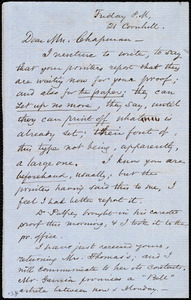 Friday P.M.
21 Cornhill.
Dear Mrs. Chapman—
I venture to write, to say
that your printers report that they
are waiting now for your proof;
and also for the paper; they can
set up no more, they say, until
they can print off what is
already set; their font of
this type not being, apparently,
a large one. I know you are,
beforehand, usually; but the
printers having said this to me,
I feel I had better report it.
Dr Palfrey brought in his corrected
proof this morning, & I took it to the
pr. office.
I have just received yours,
returning Mr. Thomas's; and I
will communicate to her its contents.
Mr Garrison promises a "Bell"
article between now & Monday.—